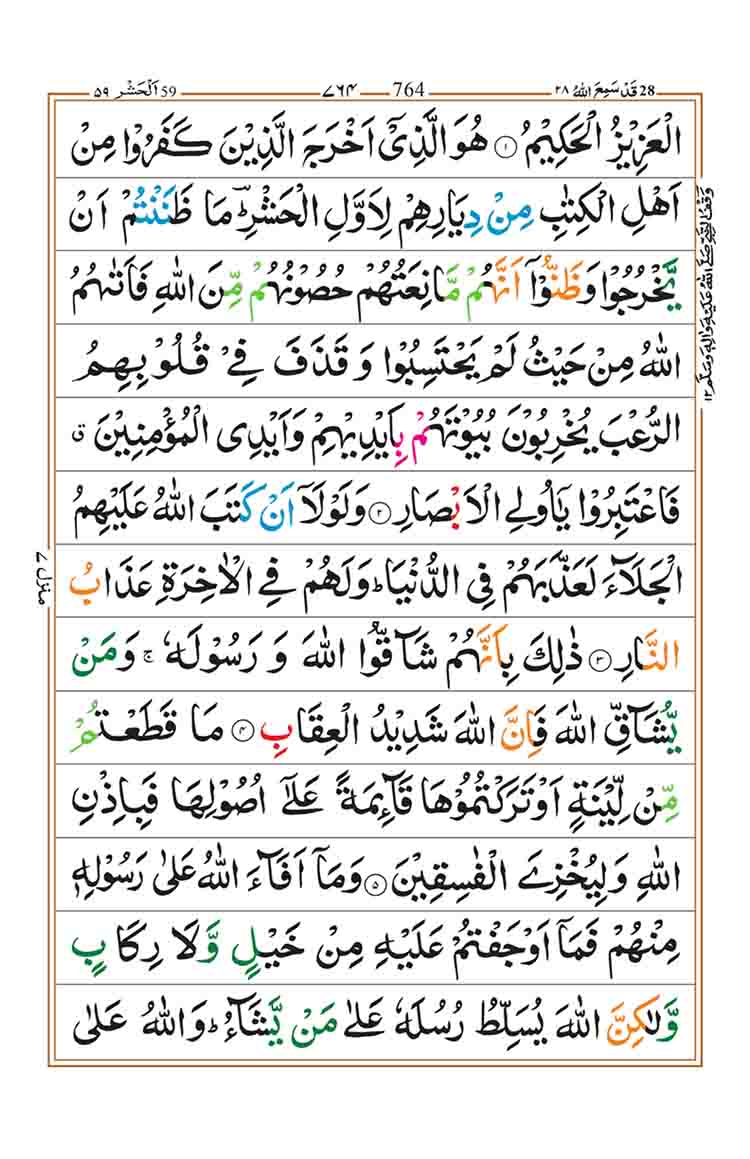 28 قَدْ سَمِعَ اللّٰهُ ٢٨ 764 ۷۶۴ 59 اَلْحَشْر ٥٩
الْعَزِيْزُ الْحَكِيْمُ ۝١ هُوَ الَّذِيْۤ اَخْرَجَ الَّذِيْنَ كَفَرُوْا مِنْ
اَهْلِ الْكِتٰبِ مِنْ دِيَارِهِمْ لِاَوَّلِ الْحَشْرِ ؔؕ مَا ظَنَنْتُمْ اَنْ
يَّخْرُجُوْا وَظَنُّوْۤا اَنَّهُمْ مَّانِعَتُهُمْ حُصُوْنُهُمْ مِّنَ اللّٰهِ فَاَتٰىهُمُ
اللّٰهُ مِنْ حَيْثُ لَمْ يَحْتَسِبُوْا وَ قَذَفَ فِيْ قُلُوْبِهِمُ
الرُّعْبَ يُخْرِبُوْنَ بُيُوْتَهُمْ بِاَيْدِيْهِمْ وَاَيْدِى الْمُؤْمِنِيْنَ ق
فَاعْتَبِرُوْا يٰۤاُولِى الْاَبْصَارِ ۝٢ وَلَوْلَاۤ اَنْ كَتَبَ اللّٰهُ عَلَيْهِمُ
الْجَلَآءَ لَعَذَّبَهُمْ فِى الدُّنْيَا ؕ وَلَهُمْ فِى الْاٰخِرَةِ عَذَابُ
النَّارِ ۝٣ ذٰلِكَ بِاَنَّهُمْ شَآقُّوا اللّٰهَ وَ رَسُوْلَهٗ ۚ وَمَنْ
يُّشَآقِّ اللّٰهَ فَاِنَّ اللّٰهَ شَدِيْدُ الْعِقَابِ ۝٤ مَا قَطَعْتُمْ
مِّنْ لِّيْنَةٍ اَوْ تَرَكْتُمُوْهَا قَآئِمَةً عَلٰۤى اُصُوْلِهَا فَبِاِذْنِ
اللّٰهِ وَلِيُخْزِىَ الْفٰسِقِيْنَ ۝٥ وَمَاۤ اَفَآءَ اللّٰهُ عَلٰى رَسُوْلِهٖ
مِنْهُمْ فَمَاۤ اَوْجَفْتُمْ عَلَيْهِ مِنْ خَيْلٍ وَّلَا رِكَابٍ
وَّلٰكِنَّ اللّٰهَ يُسَلِّطُ رُسُلَهٗ عَلٰى مَنْ يَّشَآءُ ؕ وَاللّٰهُ عَلٰى
وَقْفُ النَّبِيِّ صَلَّى اللّٰهُ عَلَيْهِ وَاٰلِهٖ وَسَلَّمَ ١٢
منزل ٧